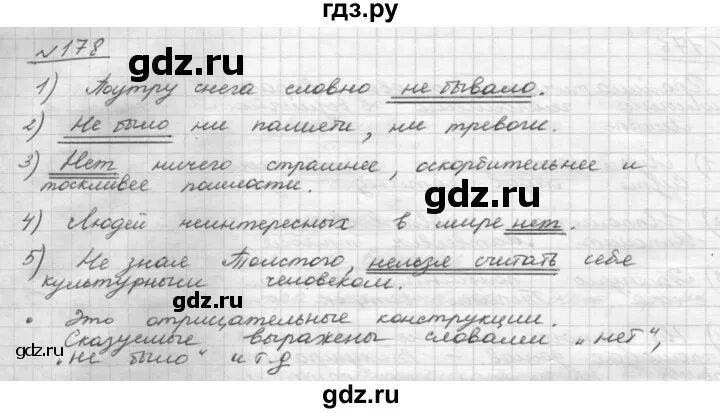 гдз.ру
№178
гдз.ру
1) Поутру снега словно не бывало.
2) Не было ни памяти, ни тревоги.
3) Нет ничего страшнее, оскорбительнее и
тоскливее пошлости.
гдз.ру
4) Людей неинтересных в мире нет.
5) Не зная Толстого, нельзя считать себя
культурным человеком.
гдз.ру
• Это отрицательные конструкции.
Сказуемые выражены словами „нет“,
„не было“ и т.д
гдз.ру
гдз.ру
гдз.ру